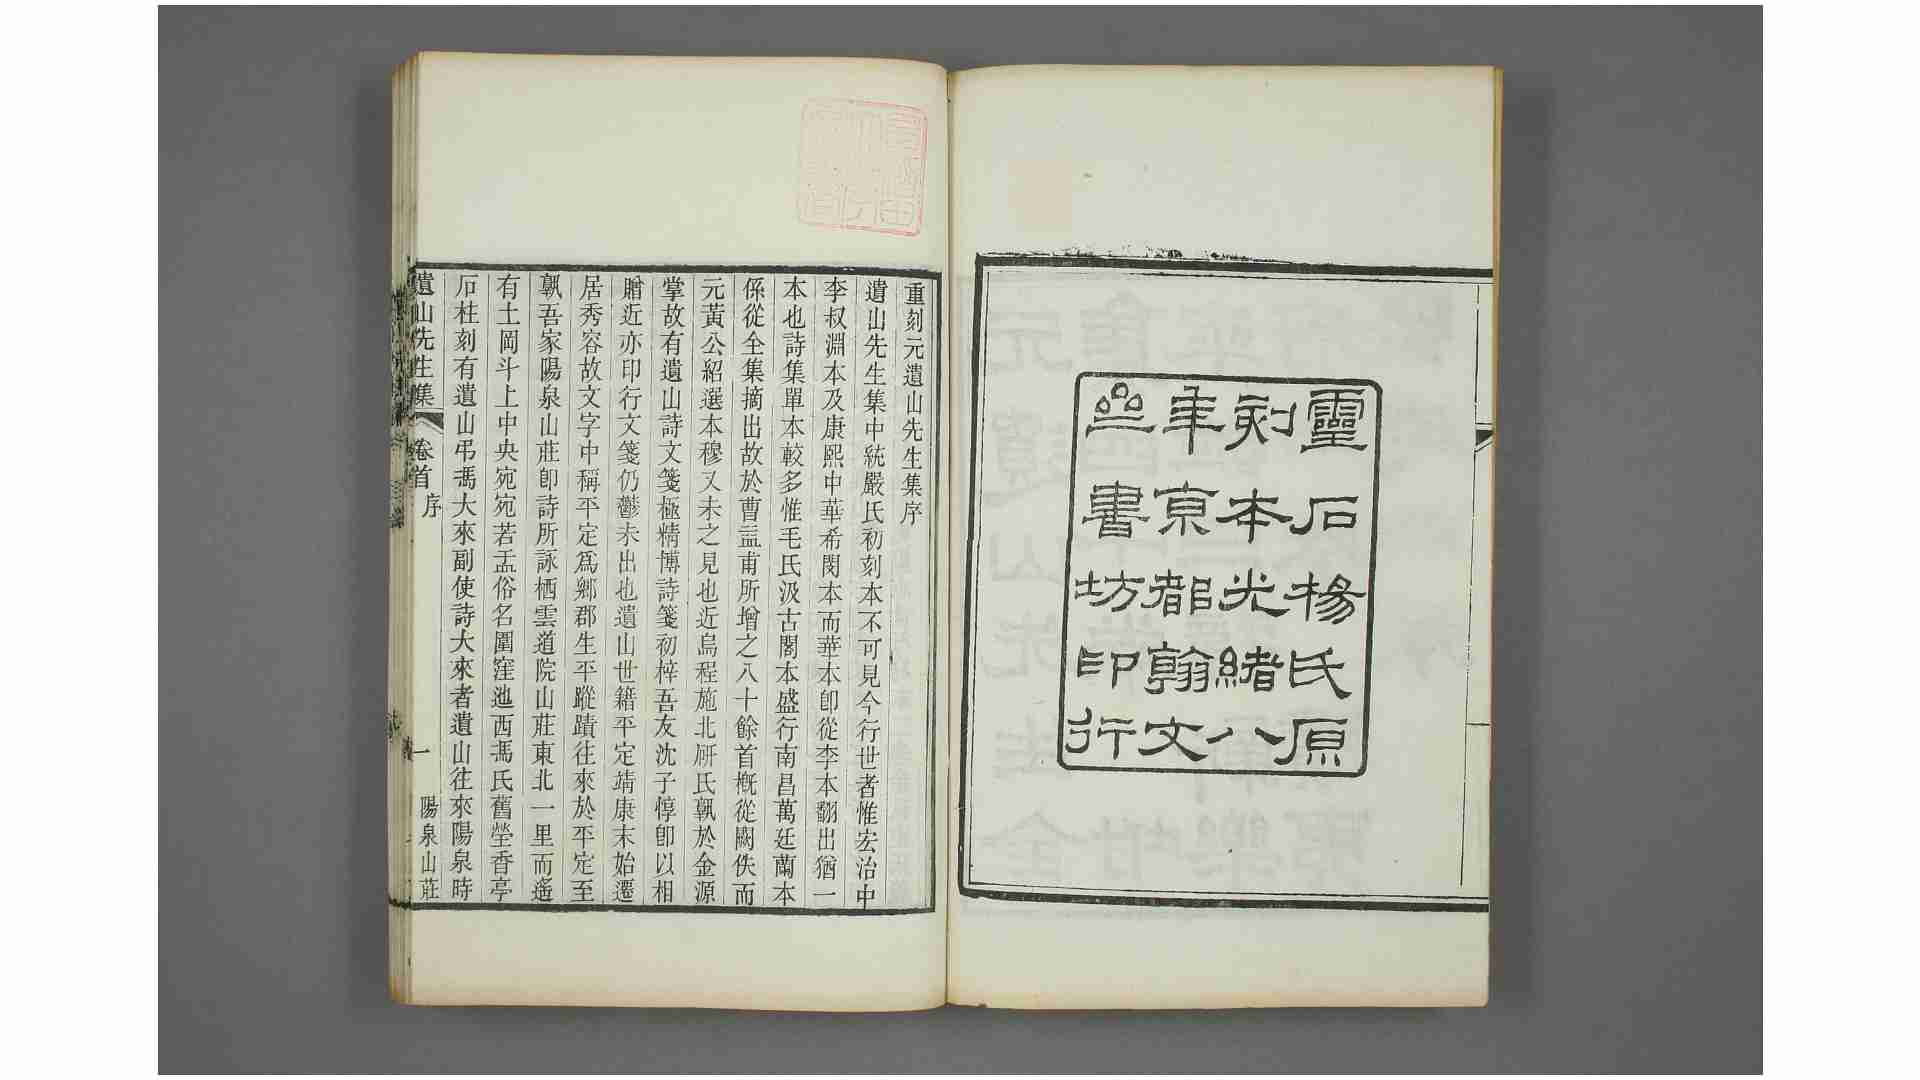 靈石楊氏原
刻本光緒八
年京都翰文
齋書坊印行
重刻元遺山先生集序
遺山先生集中統嚴氏初刻本不可見今行世者惟宏治中
李叔淵本及康熙中華希閔本而華本卽從李本翻出猶一
本也詩集單本較多惟毛氏汲古閣本盛行南昌萬廷蘭本
係從全集摘出故於曹益甫所增之八十餘首槪從闕佚而
元黃公紹選本穆又未之見也近烏程施北硏氏孰於金源
掌故有遺山詩文箋極精博詩箋初梓吾友沈子惇卽以相
贈近亦印行文箋仍鬱未出也遺山世籍平定靖康末始遷
居秀容故文字中稱平定爲鄉郡生平蹤蹟往來於平定至
孰吾家陽泉山莊卽詩所詠栖雲道院山莊東北一里而遙
有土岡斗上中央宛宛若盂俗名圍窪迆西馮氏舊塋香亭
石柱刻有遺山弔馮大來副使詩大來者遺山往來陽泉時
遺山先生集 卷首 序 一 陽泉山莊